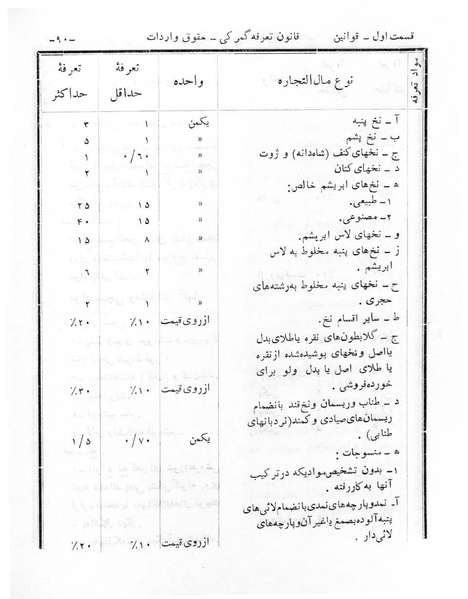 قسمت اول ــ قوانین قانون تعرفه گمرکی ــ حقوق واردات ــ۹۰ــ
مواد تعرفه نوع مال‌التجاره واحده تعرفهٔ حداقل تعرفهٔ حداکثر
آ ــ نخ پنبه یکمن ۱ ۳
ب ــ نخ پشم « ۱ ۵
ج ــ نخهای کنف (شاه‌دانه) و ژوت « ۰/۶۰ ۱
د ــ نخهای کتان « ۱ ۲
ه ــ نخ‌های ابریشم خالص:
۱ــ طبیعی. « ۱۵ ۲۵
۲ــ مصنوعی. « ۱۵ ۴۰
و ــ نخهای لاس ابریشم. « ۸ ۱۵
ز ــ نخ‌های پنبه مخلوط به لاس
ابریشم . « ۲ ۶
ح ــ نخهای پنبه مخلوط به‌رشته‌های
حجری . « ۱ ۲
ط ــ سایر اقسام نخ. ازروی قیمت ۱۰٪ ۲۰٪
ج ــ گلابطون‌های نقره یاطلای‌بدل
یااصل و نخهای پوشیده‌شده ازنقره
یا طلای اصل یا بدل ولو برای
خورده‌فروشی . ازروی قیمت ۱۰٪ ۳۰٪
د ــ طناب وریسمان ونخ‌قند باانضمام
ریسمان‌های‌صیادی وکمند(نردبانهای
طنابی) . یکمن ۰/۷۰ ۱/۵
ه ــ منسوجات:
۱ــ بدون تشخیص موادیکه درترکیب
آنها به کاررفته .
آــ نمدوپارچه‌های نمدی باانضمام لائی‌های
پنبه‌آلوده بصمغ یاغیرآن‌وپارچه‌های
لائی‌دار . ازروی قیمت ۱۰٪ ۲۰٪